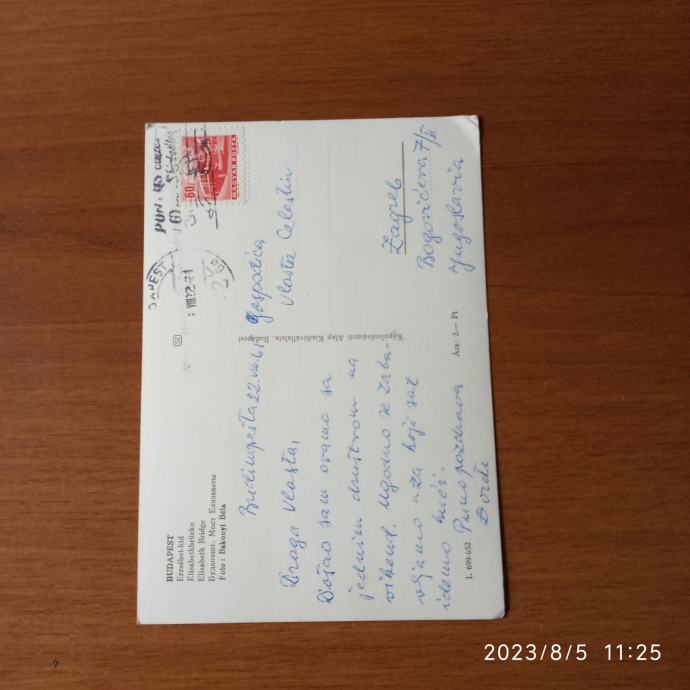 BUDAPEST
Erzsébet-híd
Elisabethbrücke
Elisabeth Bridge
Будапешт. Мост Елизаветы
Foto: Bakonyi Béla
Budimpešta 22.VIII.61
Draga Vlasta,
Došao sam ovamo sa
jednim društvom na
vikend. Ugodno se zaba-
vljamo a za koji sat
idemo kući.
Puno pozdrava
Đorđe
L 699-652
Képzőművészeti Alap Kiadóvállalata, Budapest
Ára: 2,— Ft
BUDAPEST
VIII 22-21
61
60f
MAGYAR POSTA
Gospođica
Vlasta Celestin
Zagreb
Bogovićeva 7/II
Jugoslavia
2023/8/5 11:25